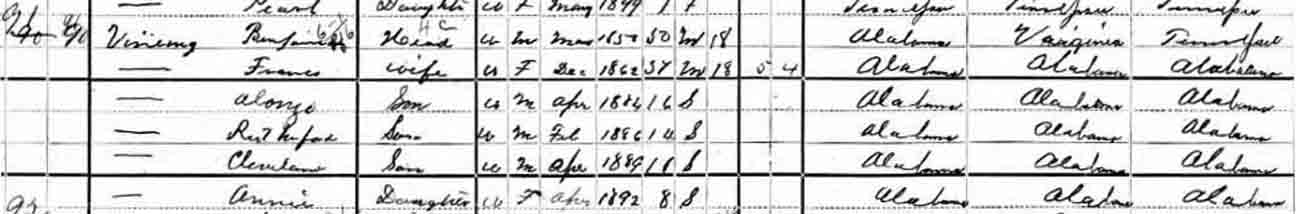 Pearl Daughter W F May 1899 1 S Tennessee Tennessee Tennessee
90 Head W M Mar 1850 50 M 18 Alabama Virginia Tennessee
— Francis Wife W F Dec 1862 37 M 18 5 4 Alabama Alabama Alabama
— Alonzo Son W M Apr 1884 16 S Alabama Alabama Alabama
— Son W M Feb 1886 14 S Alabama Alabama Alabama
— Cleveland Son W M Apr 1889 11 S Alabama Alabama Alabama
— Annie Daughter W F Apr 1892 8 S Alabama Alabama Alabama